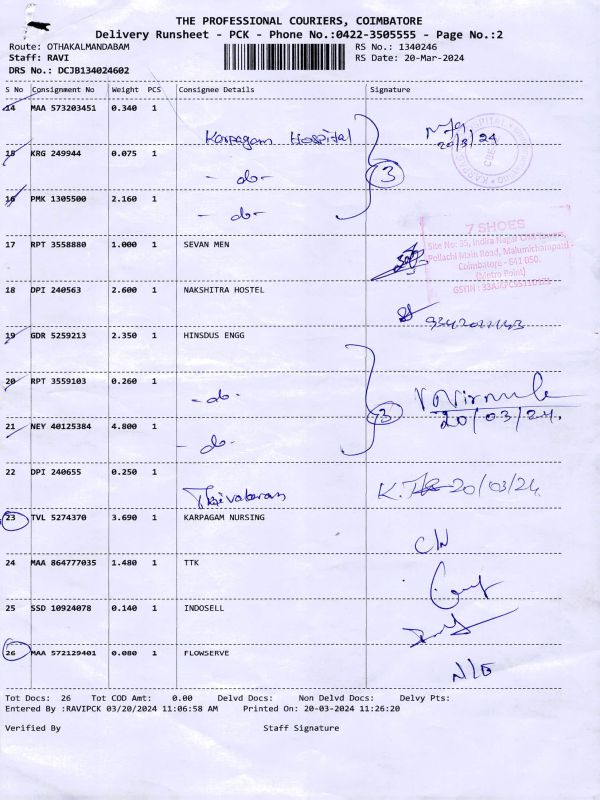 THE PROFESSIONAL COURIERS, COIMBATORE
Delivery Runsheet - PCK - Phone No.:0422-3505555 - Page No.:2
Route: OTHAKALMANDABAM RS No.: 1340246
Staff: RAVI RS Date: 20-Mar-2024
DRS No.: DCJB134024602
S No Consignment No Weight PCS Consignee Details Signature
14 MAA 573203451 0.340 1
Karpagam Hospital 20/3/24
15 KRG 249944 0.075 1
- do - 3
16 PMK 1305500 2.160 1
- do -
7 SHOES
17 RPT 3558880 1.000 1 SEVAN MEN
Pollachi Main Road, Malumichampatti
Coimbatore - 641 050.
(Metro Point)
18 DPI 240563 2.600 1 NAKSHITRA HOSTEL
19 GDR 5259213 2.350 1 HINSDUS ENGG
20 RPT 3559103 0.260 1
- do -
20/03/24.
21 NEY 40125384 4.800 1
- do - 3
22 DPI 240655 0.250 1
K. 20/03/24.
23 TVL 5274370 3.690 1 KARPAGAM NURSING
24 MAA 864777035 1.480 1 TTK
25 SSD 10924078 0.140 1 INDOSELL
26 MAA 572129401 0.080 1 FLOWSERVE
Tot Docs: 26 Tot COD Amt: 0.00 Delvd Docs: Non Delvd Docs: Delvy Pts:
Entered By :RAVIPCK 03/20/2024 11:06:58 AM Printed On: 20-03-2024 11:26:20
Verified By Staff Signature